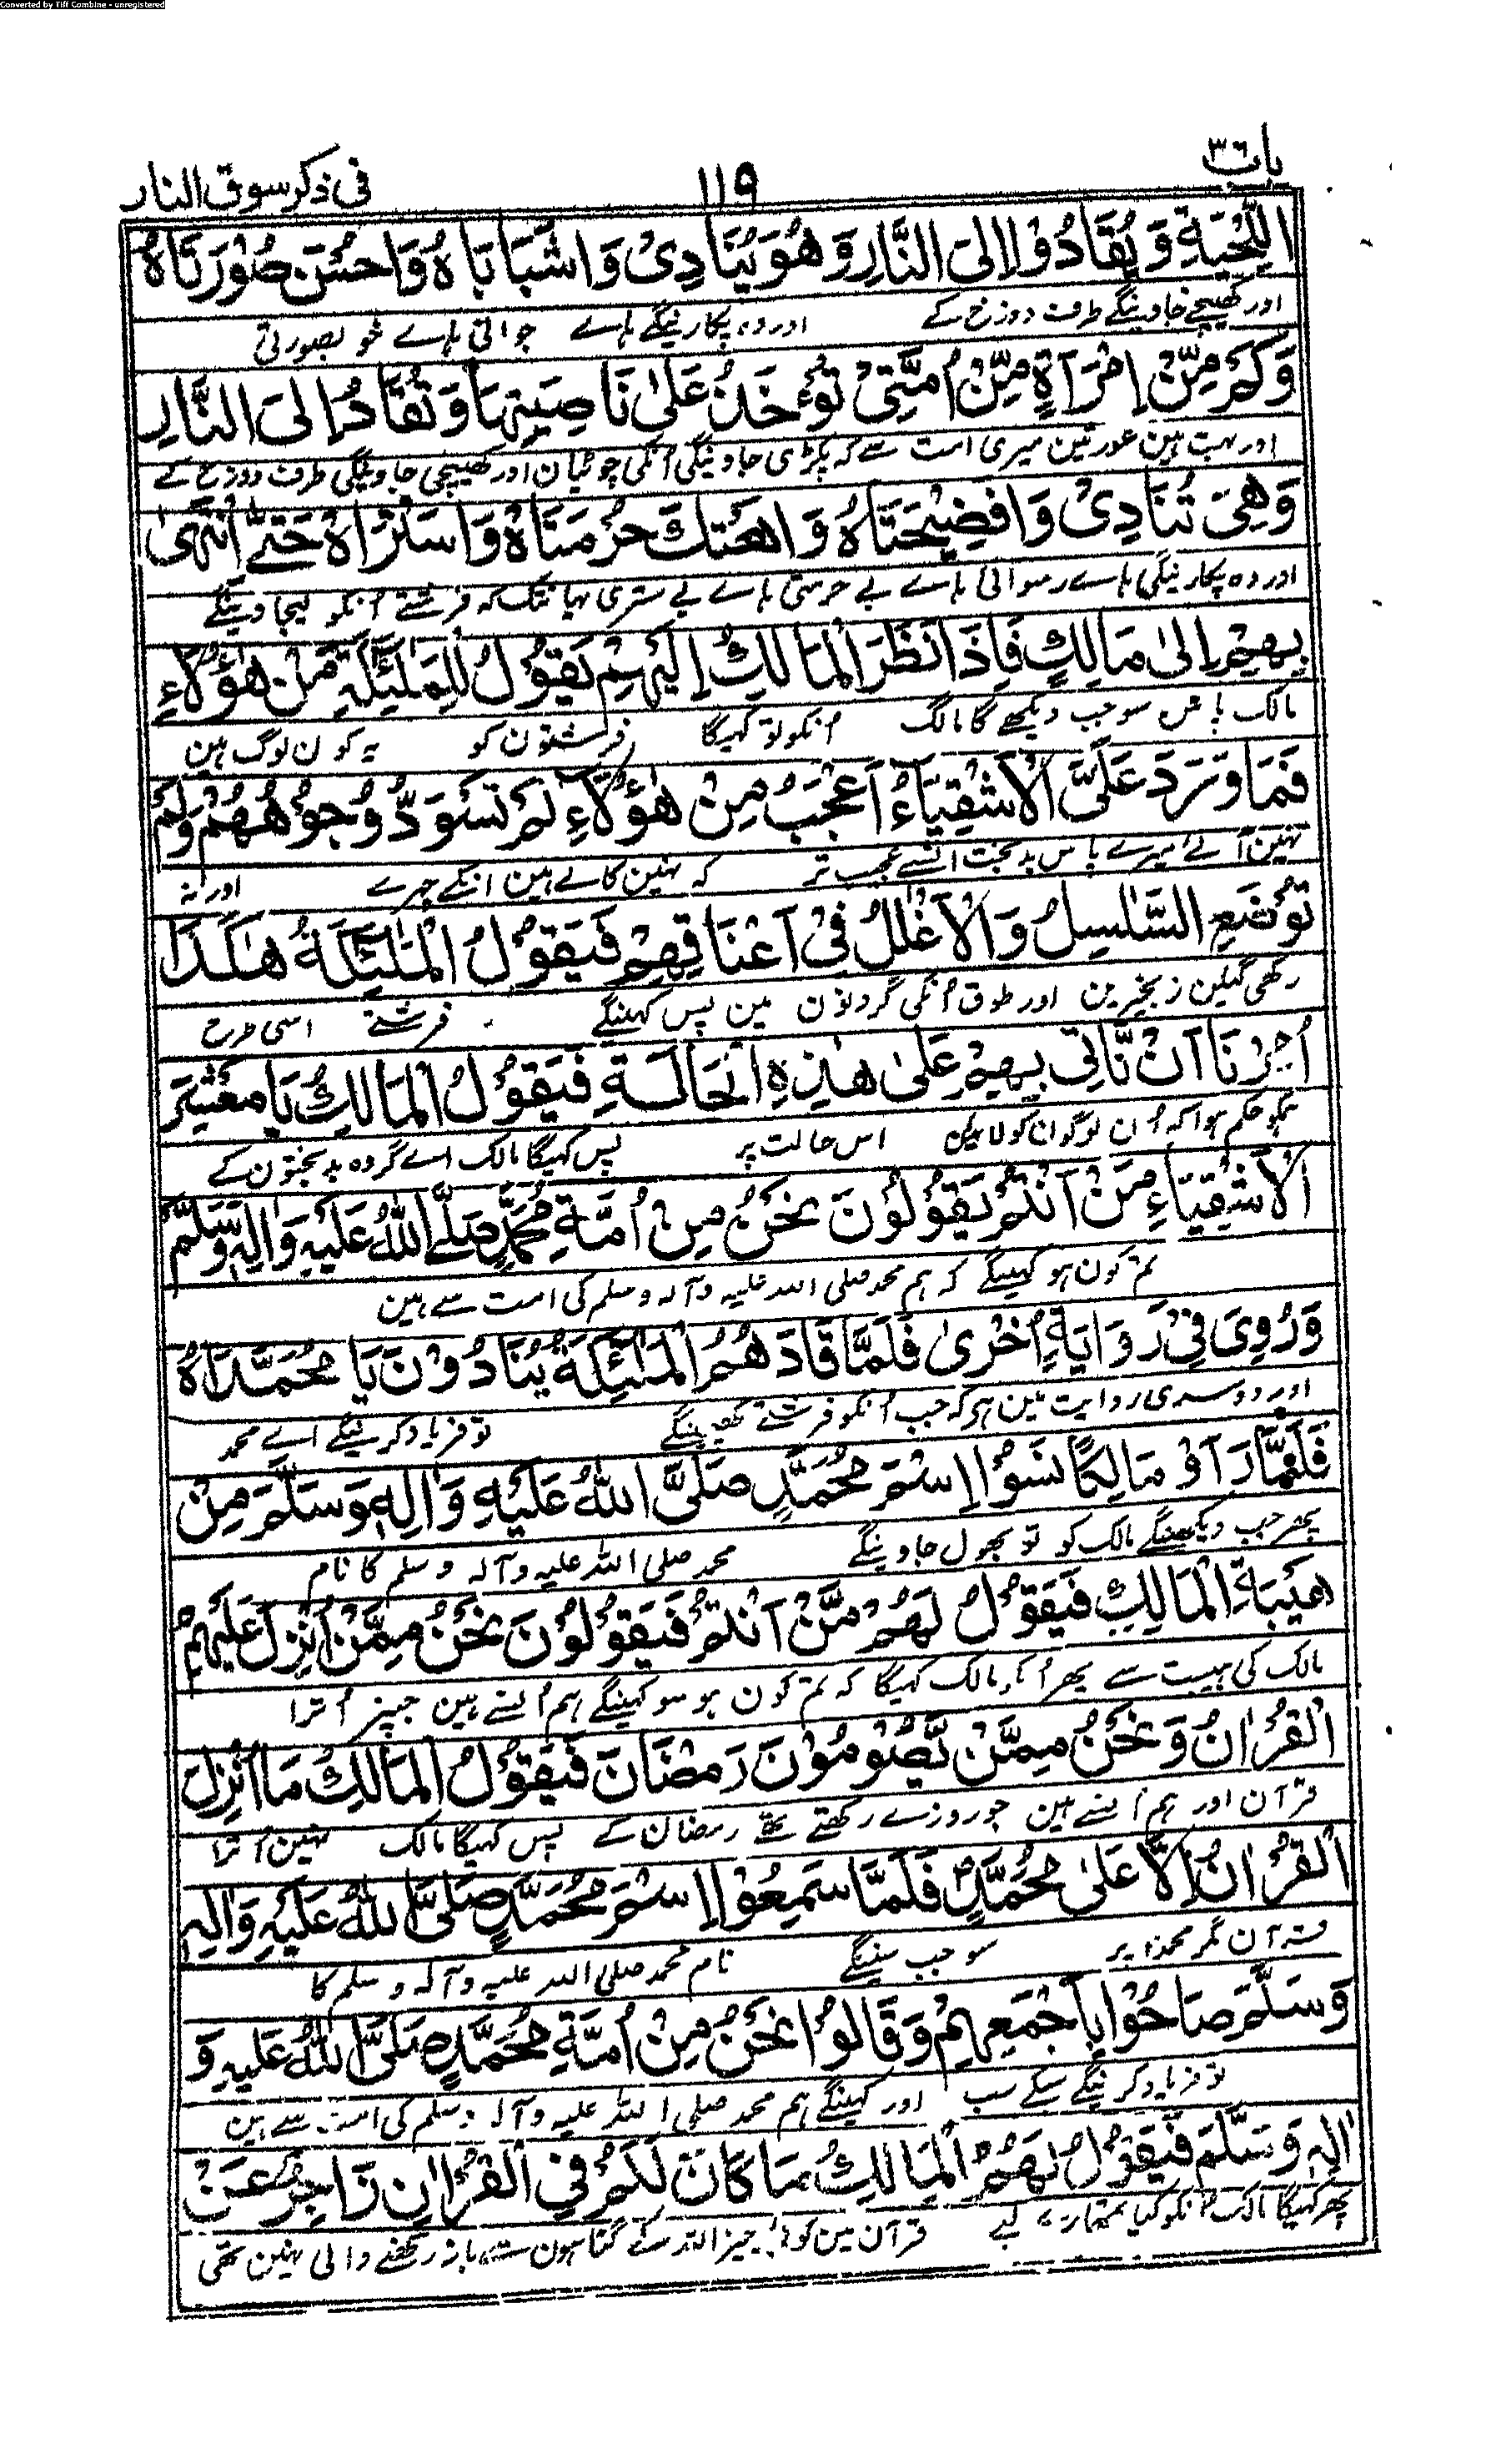 Converted by Tiff Combine - unregistered
باب ٣٦
١١٩
فی ذکر سوق النار
اللِّحْيَةِ وَيُقَادُوْا اِلَى النَّارِ وَهُوَ يُنَادِىْ وَاشَبَابَاهُ وَاحُسْنَ صُوْرَتَاهُ
اور کھینچے جاوینگے طرف دوزخ کے اور وہ پکارینگے ہاے جوانی ہاے خوبصورتی
وَكَمْ مِّنْ اِمْرَأَةٍ مِّنْ اُمَّتِىْ تُؤْخَذُ عَلٰى نَاصِيَتِهَا وَتُقَادُ اِلَى النَّارِ
اور بہت ہین عورتین میری امت سے کہ پکڑی جاوینگی اُنکی چوٹیان اور کھینچی جاوینگی طرف دوزخ کے
وَهِىَ تُنَادِىْ وَافَضِيْحَتَاهُ وَاهَتْكَ حُرْمَتَاهُ وَاسَتْرَاهُ حَتّٰى انْتَهٰى
اور وہ پکارینگی ہاے رسوائی ہاے بے حرمتی ہاے بے ستری یہانتک کہ فرشتے اُنکو لیجاوینگے
بِهِمْ اِلٰى مَالِكٍ فَاِذَا نَظَرَ الْمَالِكُ اِلَيْهِمْ يَقُوْلُ لِلْمَلٰئِكَةِ مَنْ هٰؤُلَاءِ
مالک پاس سو جب دیکھے گا مالک اُنکو تو کہیگا فرشتون کو یہ کون لوگ ہین
فَمَا وَرَدَ عَلَىَّ الْاَشْقِيَاءُ اَعْجَبُ مِنْ هٰؤُلَاءِ لَمْ تَسْوَدُّ وُجُوْهُهُمْ وَلَمْ
نہین آئے میرے پاس بدبخت انسے عجیب تر کہ نہین کالے ہین انکے چہرے اور نہ
تُوْضَعِ السَّلٰسِلُ وَالْاَغْلٰلُ فِىْ اَعْنَاقِهِمْ فَيَقُوْلُ الْمَلٰئِكَةُ هٰكَذَا
رکھی گئین زنجیرین اور طوق اُنکی گردنون مین پس کہینگے فرشتے اسی طرح
اُمِرْنَا اَنْ نَّاْتِىَ بِهِمْ عَلٰى هٰذِهِ الْحَالَةِ فَيَقُوْلُ الْمَالِكُ يَا مَعْشَرَ
ہمکو حکم ہوا کہ اُن لوگون کو لاوین اس حالت پر پس کہیگا مالک اے گروہ بدبختون کے
الْاَشْقِيَاءِ مَنْ اَنْتُمْ يَقُوْلُوْنَ نَحْنُ مِنْ اُمَّةِ مُحَمَّدٍ صَلَّى اللّٰهُ عَلَيْهِ وَاٰلِهٖ وَسَلَّمَ
تم کون ہو کہینگے کہ ہم محمد صلی اللہ علیہ وآلہ وسلم کی امت سے ہین
وَرُوِىَ فِىْ رَوَايَةٍ اُخْرٰى فَلَمَّا قَادَهُمُ الْمَلٰئِكَةُ يُنَادُوْنَ يَا مُحَمَّدَاهُ
اور دوسری روایت مین ہے کہ جب اُنکو فرشتے کھینچینگے تو فریاد کرینگے اے محمد
فَلَمَّا رَاَوْ مَالِكًا نَسَوْا اِسْمَ مُحَمَّدٍ صَلَّى اللّٰهُ عَلَيْهِ وَاٰلِهٖ وَسَلَّمَ مِنْ
پھر جب دیکھینگے مالک کو تو بھول جاوینگے محمد صلی اللہ علیہ وآلہ وسلم کا نام
هَيْبَةِ الْمَالِكِ فَيَقُوْلُ لَهُمْ مَّنْ اَنْتُمْ فَيَقُوْلُوْنَ نَحْنُ مِمَّنْ اُنْزِلَ عَلَيْهِمُ
مالک کی ہیبت سے پھر اُنکو مالک کہیگا کہ تم کون ہو سو کہینگے ہم اُنسے ہین جنپر اُترا
الْقُرْاٰنُ وَنَحْنُ مِمَّنْ يَّصُوْمُوْنَ رَمَضَانَ فَيَقُوْلُ الْمَالِكُ مَا اُنْزِلَ
قرآن اور ہم اُنسے ہین جو روزے رکھتے تھے رمضان کے پس کہیگا مالک نہین اُترا
الْقُرْاٰنُ اِلَّا عَلٰى مُحَمَّدٍ فَلَمَّا سَمِعُوْا اِسْمَ مُحَمَّدٍ صَلَّى اللّٰهُ عَلَيْهِ وَاٰلِهٖ
قرآن مگر محمد پر سو جب سنینگے نام محمد صلی اللہ علیہ وآلہ وسلم کا
وَسَلَّمَ صَاحُوْا بِاَجْمَعِهِمْ وَقَالُوْا نَحْنُ مِنْ اُمَّةِ مُحَمَّدٍ صَلَّى اللّٰهُ عَلَيْهِ وَ
تو فریاد کرینگے سبکے سب اور کہینگے ہم محمد صلی اللہ علیہ وآلہ وسلم کی امت سے ہین
اٰلِهٖ وَسَلَّمَ فَيَقُوْلُ لَهُمُ الْمَالِكُ مَا كَانَ لَكُمْ فِى الْقُرْاٰنِ زَاجِرٌ عَنْ
پھر کہیگا مالک اُنکو کیا تمھارے لیے قرآن مین کوئی چیز اللہ کے گناہون سے باز رکھنے والی نہین تھی